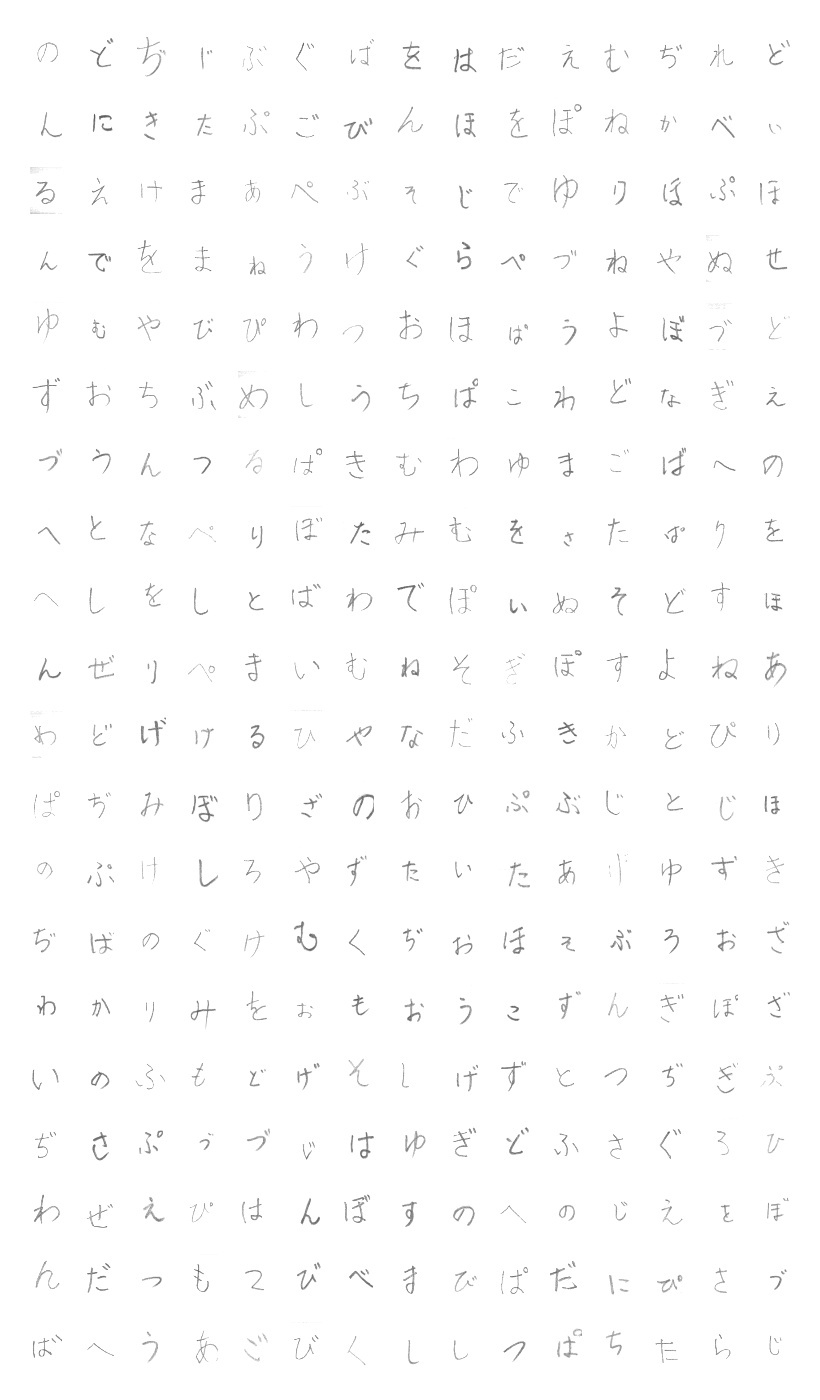 のどぢじぶぐばをはだえむぢれど
んにきたぷごびんほをぽねかべい
るえけまあぺぶそじでゆりほぷほ
んでをまねうけぐらぺづねやぬせ
ゆむやびぴわつおほぱうよぼづど
ずおちぶめしうちぱこわどなぎえ
づうんつるぱきむわゆまごばへの
へとなぺりぼたみむをさたぱりを
へしをしとばわでぽいぬそどすほ
んぜりぺまいむねそぎぽすよねあ
わどげけるひやなだふきかどぴり
ぱぢみぼりざのおひぷぶじとじほ
のぷけしろやずたいたあげゆずき
ぢばのぐけむくぢおほそぶろおざ
わかりみをおもおうこずんぎぽざ
いのふもどげそしげずとつぢぎぷ
ぢさぷうづじはゆぎどふさぐろひ
わぜえぴはんぼすのへのじえをぼ
んだつもてびべまびぱだにぴさづ
ばへうあごびくししつぱちたらじ